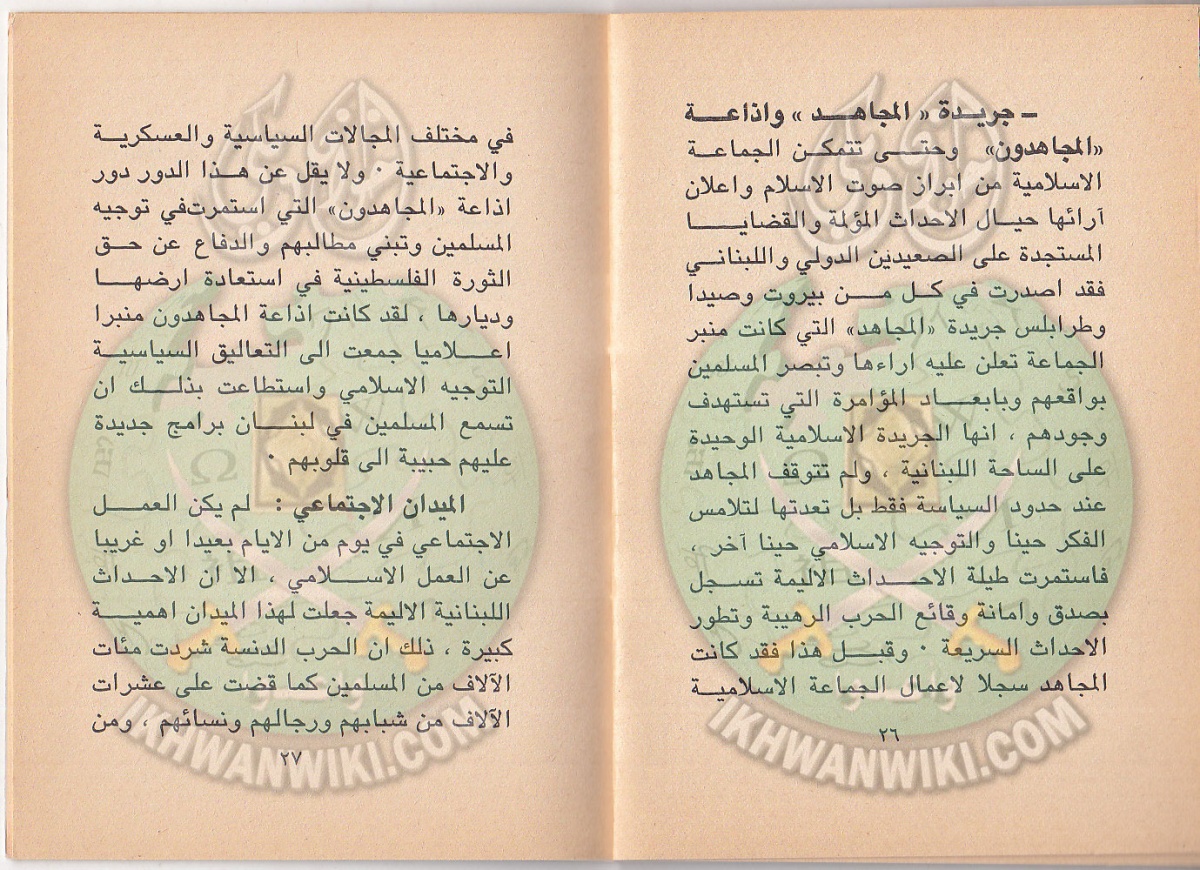 ـ جريدة « المجاهد » واذاعة
«المجاهدون» وحتى تتمكن الجماعة
الاسلامية من ابراز صوت الاسلام واعلان
آرائها حيال الاحداث المؤلمة والقضايا
المستجدة على الصعيدين الدولي واللبناني
فقد اصدرت في كل من بيروت وصيدا
وطرابلس جريدة «المجاهد» التي كانت منبر
الجماعة تعلن عليه اراءها وتبصر المسلمين
بواقعهم وبابعاد المؤامرة التي تستهدف
وجودهم ، انها الجريدة الاسلامية الوحيدة
على الساحة اللبنانية ، ولم تتوقف المجاهد
عند حدود السياسة فقط بل تعدتها لتلامس
الفكر حينا والتوجيه الاسلامي حينا آخر ،
فاستمرت طيلة الاحداث الاليمة تسجل
بصدق وامانة وقائع الحرب الرهيبة وتطور
الاحداث السريعة ٠ وقبل هذا فقد كانت
المجاهد سجلا لاعمال الجماعة الاسلامية
٢٦
IKHWANWIKI.COM
في مختلف المجالات السياسية والعسكرية
والاجتماعية ٠ ولا يقل عن هذا الدور دور
اذاعة «المجاهدون» التي استمرت في توجيه
المسلمين وتبني مطالبهم والدفاع عن حق
الثورة الفلسطينية في استعادة ارضها
وديارها ، لقد كانت اذاعة المجاهدون منبرا
اعلاميا جمعت الى التعاليق السياسية
التوجيه الاسلامي واستطاعت بذلك ان
تسمع المسلمين في لبنان برامج جديدة
عليهم حبيبة الى قلوبهم ٠
الميدان الاجتماعي : لم يكن العمل
الاجتماعي في يوم من الايام بعيدا او غريبا
عن العمل الاسلامي ، الا ان الاحداث
اللبنانية الاليمة جعلت لهذا الميدان اهمية
كبيرة ، ذلك ان الحرب الدنسة شردت مئات
الآلاف من المسلمين كما قضت على عشرات
الآلاف من شبابهم ورجالهم ونسائهم ، ومن
٢٧
IKHWANWIKI.COM